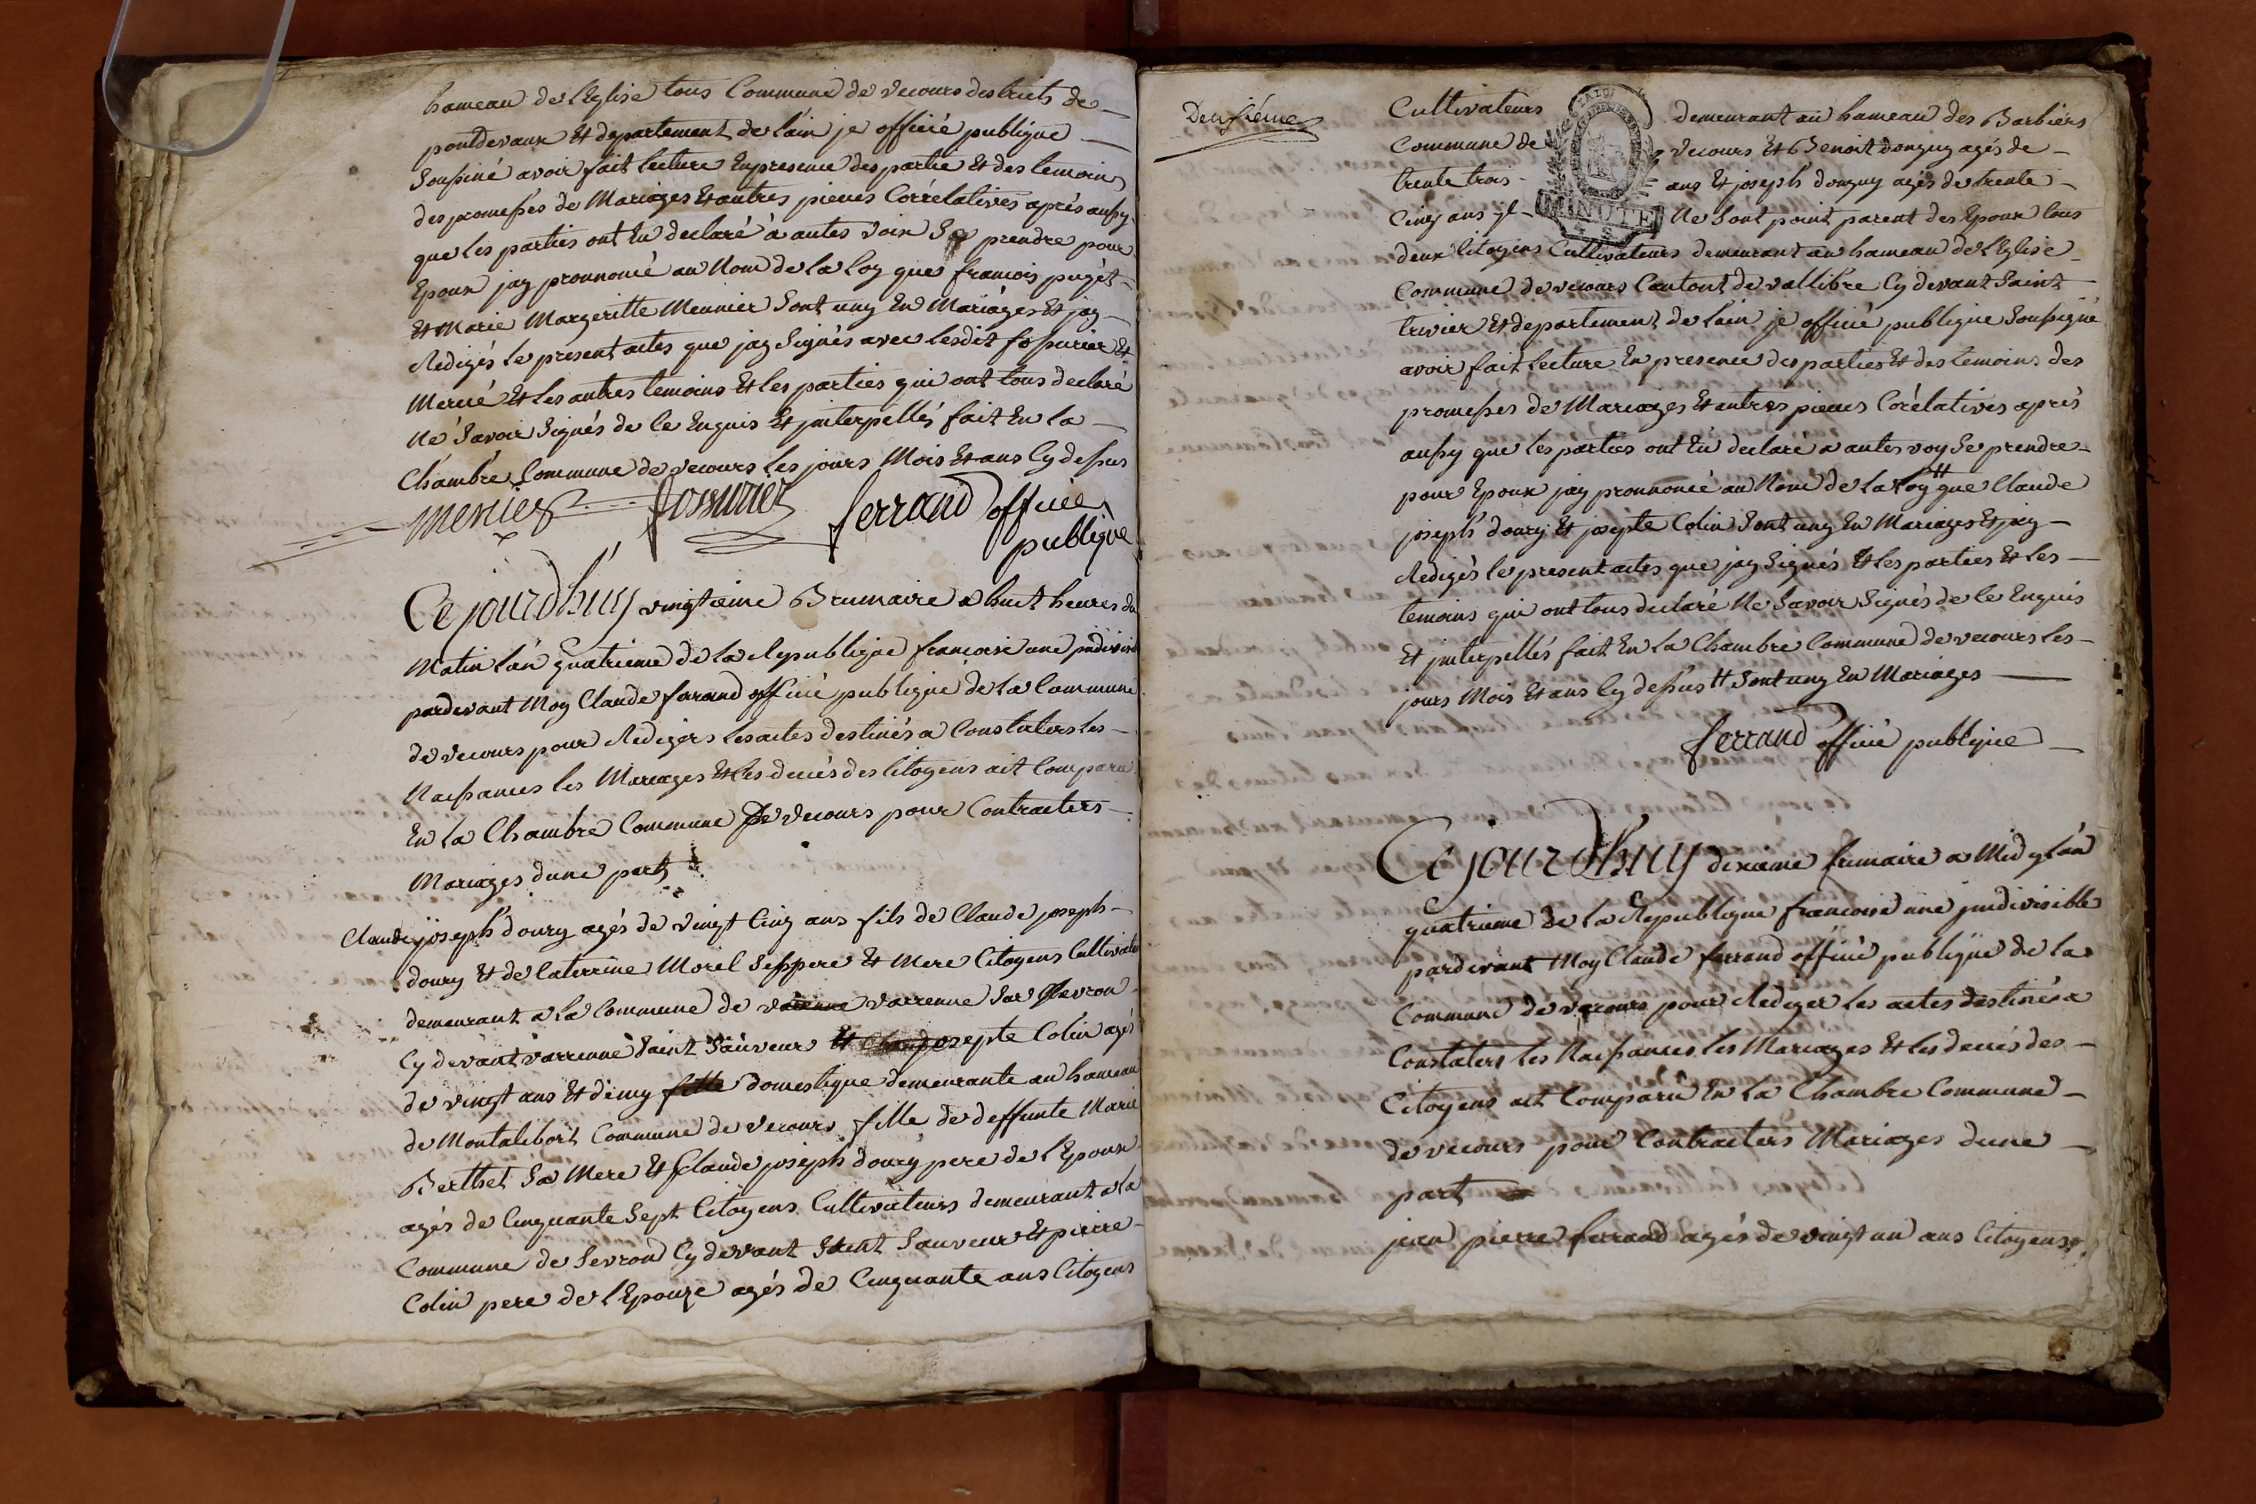 hameau de l'Eglise tous Commune de vecours destricts de
pontdevaux Et departement de lain je officié publique
Soussiné avoir fait lecture Enpresence des partie Et des temoins
des promesses de Mariages Et autres pieces Corrélatives après aussy
que les parties ont Eu declaré à autes voix Se prendre pour
Epoux jay prononcé au Nom de la Loy que francois pugèt
Et Marie Margeritte Meunier Sont uny En Mariages Et jay
Redigés le present actes que jay Signés avec lesdit fossurier Et
Mercié Et les autres temoins Et les parties qui ont tous declaré
Ne Savoir Signés de ce Enquis Et jnterpellés fait En la
Chambre Commune de vecours les jours Mois Et ans Cy dessus
Mercier fossurier ferrand officié
publique
Ce jourdhuy vingtieme Brumaire a huit heures du
Matin lan quatrieme de la Republique francoise une jndivisi
pardevant Moy Claude ferrand officié publique de la Commune
de vecours pour Redigers les actes destinés a Constaters les
Naissances les Mariages Et les decés des Citoyens ait Comparu
En la Chambre Commune de vecours pour Contracters
Mariages dune part
Claude joseph doury agés de vingt Cinq ans fils de Claude joseph
doury Et de Caterine Morel Ses pere Et Mere Citoyens Cultivate
demeurant a la Commune de varenne varrenne Sur Sevron
Cy devant varrenne Saint Sauveur Et josepte Colin agés
de vingt ans Et demy fille domestique demeurante au hameau
de Montalibort Commune de vecours fille de deffunte Marie
Berthet Sa Mere Et Claude joseph doury pere de l'Epoux
agés de Cinquante Sept Citoyens Cultivateurs demeurant a la
Commune de Sevron Cy devant Saint Sauveur Et pierre
Colin pere de l'Epouze agés de Cinquante ans Citoyens
Deuxiéme
Cultivateurs demeurant au hameau des Barbiers
Commune de vecours Et Benoit donguy agés de
trente trois ans Et joseph donguy agés de trente
Cinq ans Ne Sont point parent des Epoux tous
deux Citoyens Cultivateurs demeurant au hameau de l'Eglise
Commune de vecours Cantont de vallibre Cy devant Saint
trivier Et departement de lain je officié publique Soussigné
avoir fait lecture En presence des parties Et des temoins des
promesses de Mariages Et autres pieces Corélatives aprés
aussy que les parties ont Eu declaré a autes voy Se prendre
pour Epoux jay prononcé au Nom de la Loy # que Claude
joseph doury Et josepte Colin Sont uny En Mariages Et jay
Redigés le present actes que jay Signés Et les parties Et les
temoins qui ont tous declaré Ne Savoir Signés de ce Enquis
Et jnterpellés fait En la Chambre Commune de vecours les
jours Mois Et ans Cy dessus # Sont uny En Mariages
ferrand officié publique
MINUTE
Ce jourdhuy dixieme frimaire a Midy lan
quatrieme de la Republique francoise une jndivisible
pardevant Moy Claude ferrand officié publique de la
Commune de vecours pour Rediger les actes destinés a
Constaters les Naissances les Mariages Et les decés des
Citoyens ait Comparu En la Chambre Commune
de vecours pour Contracters Mariages dune
part
jean pierre ferrand agés de vingt un ans Citoyens